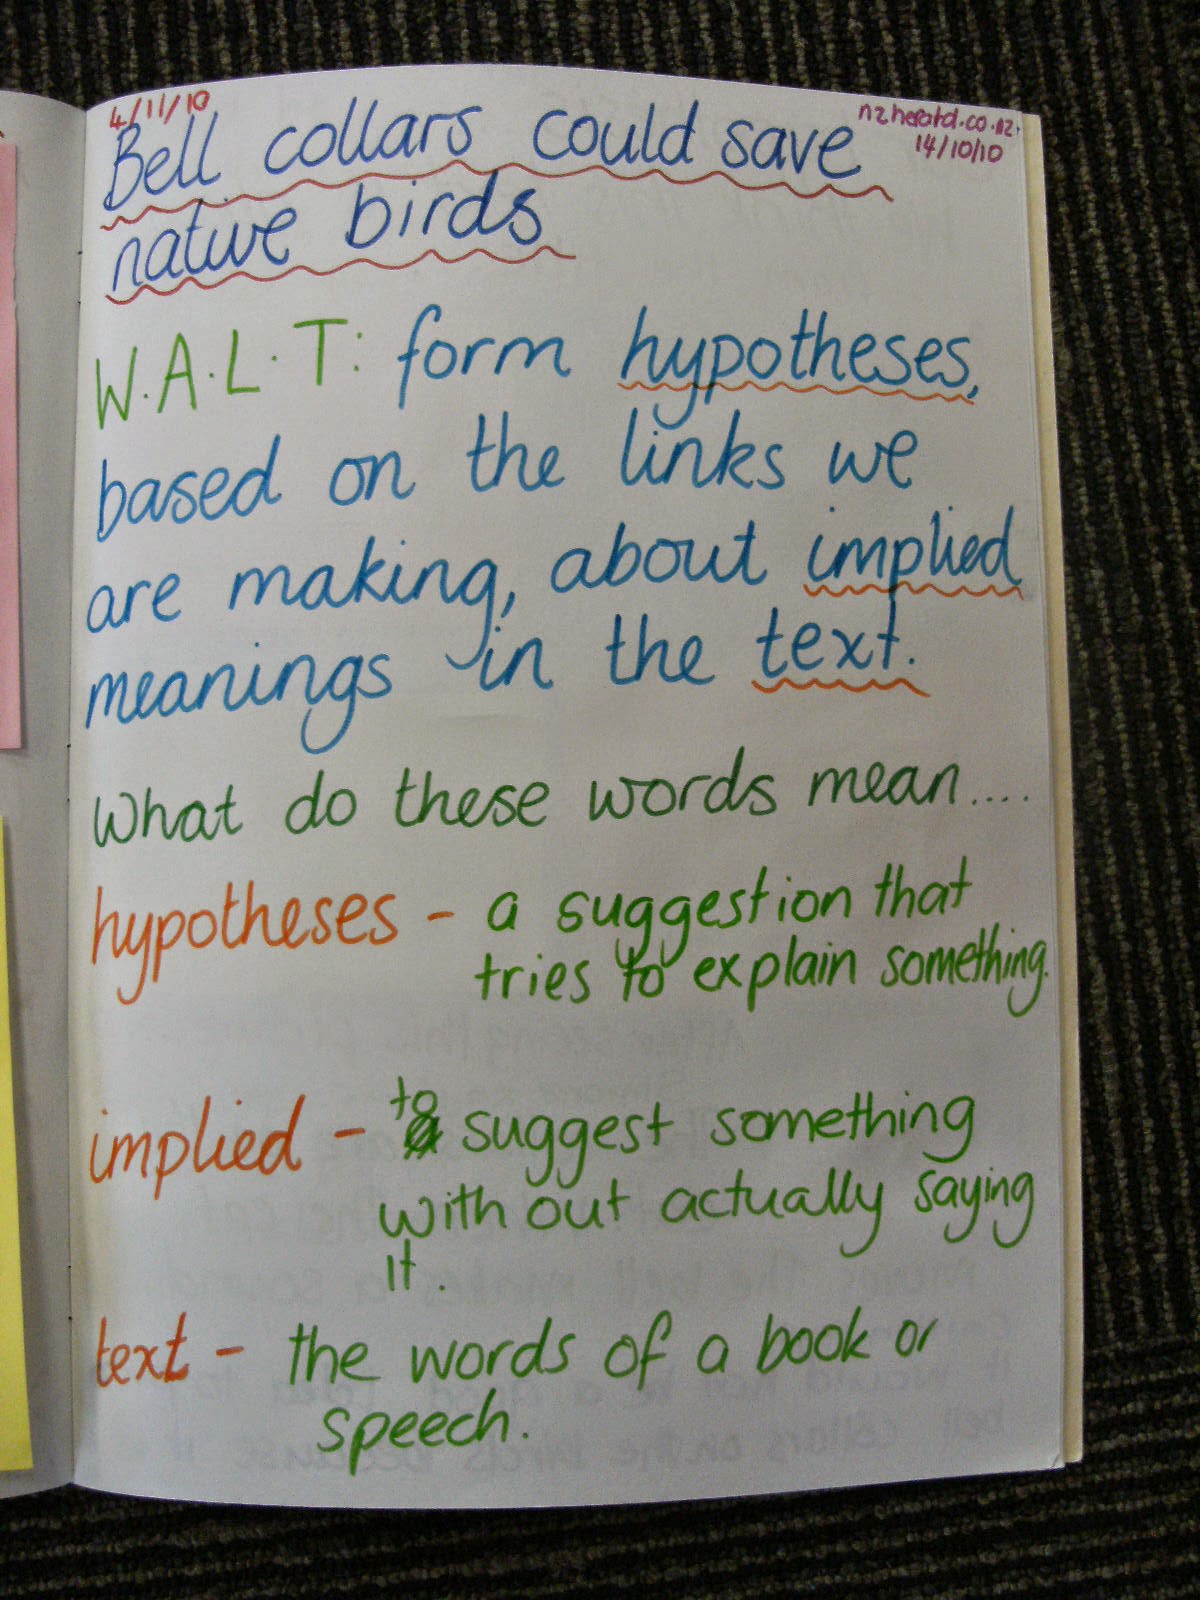 4/11/10
nzherald.co.nz.
14/10/10
Bell collars could save
native birds
W.A.L.T: form hypotheses,
based on the links we
are making, about implied
meanings in the text.
What do these words mean....
hypotheses - a suggestion that
tries to explain something.
implied - to suggest something
with out actually saying
it.
text - the words of a book or
speech.